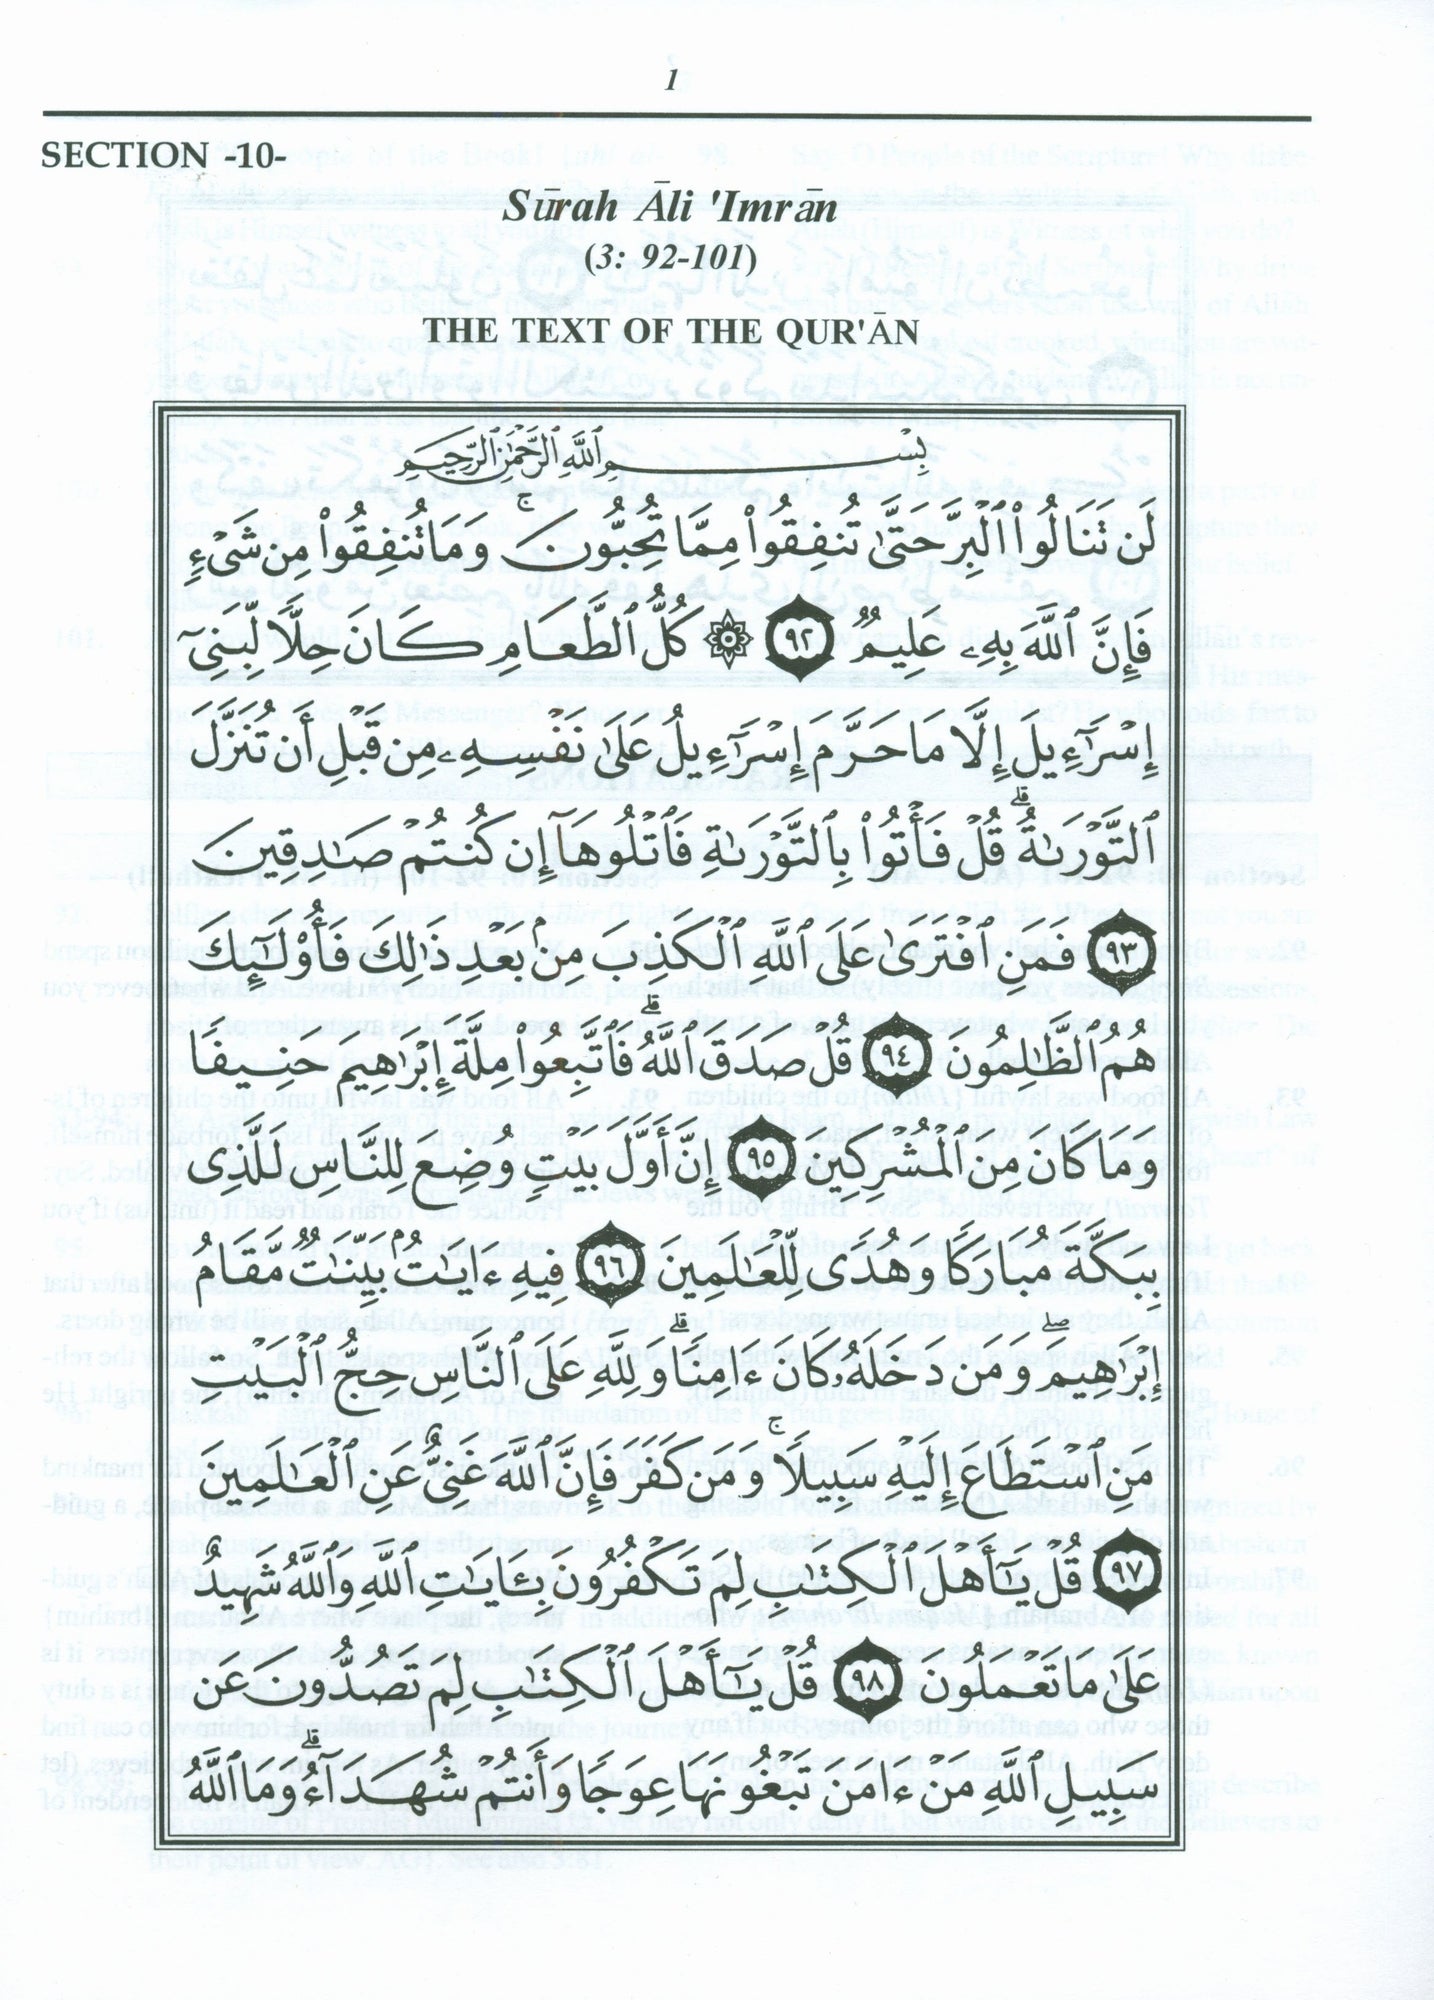 1
SECTION -10-
Sūrah Āli 'Imrān
(3: 92-101)
THE TEXT OF THE QUR'ĀN
بِسْمِ ٱللَّهِ ٱلرَّحْمَٰنِ ٱلرَّحِيمِ
لَن تَنَالُوا۟ ٱلْبِرَّ حَتَّىٰ تُنفِقُوا۟ مِمَّا تُحِبُّونَ ۚ وَمَا تُنفِقُوا۟ مِن شَىْءٍ
فَإِنَّ ٱللَّهَ بِهِۦ عَلِيمٌ ٩٢ ۞ كُلُّ ٱلطَّعَامِ كَانَ حِلًّا لِّبَنِىٓ
إِسْرَٰٓءِيلَ إِلَّا مَا حَرَّمَ إِسْرَٰٓءِيلُ عَلَىٰ نَفْسِهِۦ مِن قَبْلِ أَن تُنَزَّلَ
ٱلتَّوْرَىٰةُ ۗ قُلْ فَأْتُوا۟ بِٱلتَّوْرَىٰةِ فَٱتْلُوهَآ إِن كُنتُمْ صَٰدِقِينَ
٩٣ فَمَنِ ٱفْتَرَىٰ عَلَى ٱللَّهِ ٱلْكَذِبَ مِنۢ بَعْدِ ذَٰلِكَ فَأُو۟لَٰٓئِكَ
هُمُ ٱلظَّٰلِمُونَ ٩٤ قُلْ صَدَقَ ٱللَّهُ ۗ فَٱتَّبِعُوا۟ مِلَّةَ إِبْرَٰهِيمَ حَنِيفًا
وَمَا كَانَ مِنَ ٱلْمُشْرِكِينَ ٩٥ إِنَّ أَوَّلَ بَيْتٍ وُضِعَ لِلنَّاسِ لَلَّذِى
بِبَكَّةَ مُبَارَكًا وَهُدًى لِّلْعَٰلَمِينَ ٩٦ فِيهِ ءَايَٰتٌۢ بَيِّنَٰتٌ مَّقَامُ
إِبْرَٰهِيمَ ۖ وَمَن دَخَلَهُۥ كَانَ ءَامِنًا ۗ وَلِلَّهِ عَلَى ٱلنَّاسِ حِجُّ ٱلْبَيْتِ
مَنِ ٱسْتَطَاعَ إِلَيْهِ سَبِيلًا ۚ وَمَن كَفَرَ فَإِنَّ ٱللَّهَ غَنِىٌّ عَنِ ٱلْعَٰلَمِينَ
٩٧ قُلْ يَٰٓأَهْلَ ٱلْكِتَٰبِ لِمَ تَكْفُرُونَ بِـَٔايَٰتِ ٱللَّهِ وَٱللَّهُ شَهِيدٌ
عَلَىٰ مَا تَعْمَلُونَ ٩٨ قُلْ يَٰٓأَهْلَ ٱلْكِتَٰبِ لِمَ تَصُدُّونَ عَن
سَبِيلِ ٱللَّهِ مَنْ ءَامَنَ تَبْغُونَهَا عِوَجًا وَأَنتُمْ شُهَدَآءُ ۗ وَمَا ٱللَّهُ